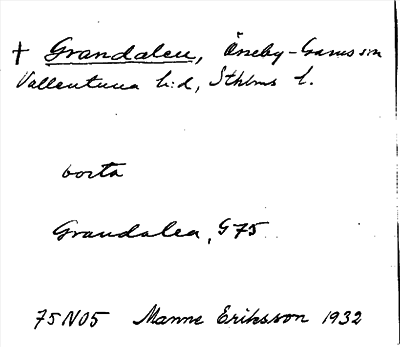 † Grandalen, Össeby-Garns sn
Vallentuna h:d, Sthlms l.
borta
Grandalen, G75
75N05 Manne Eriksson 1932